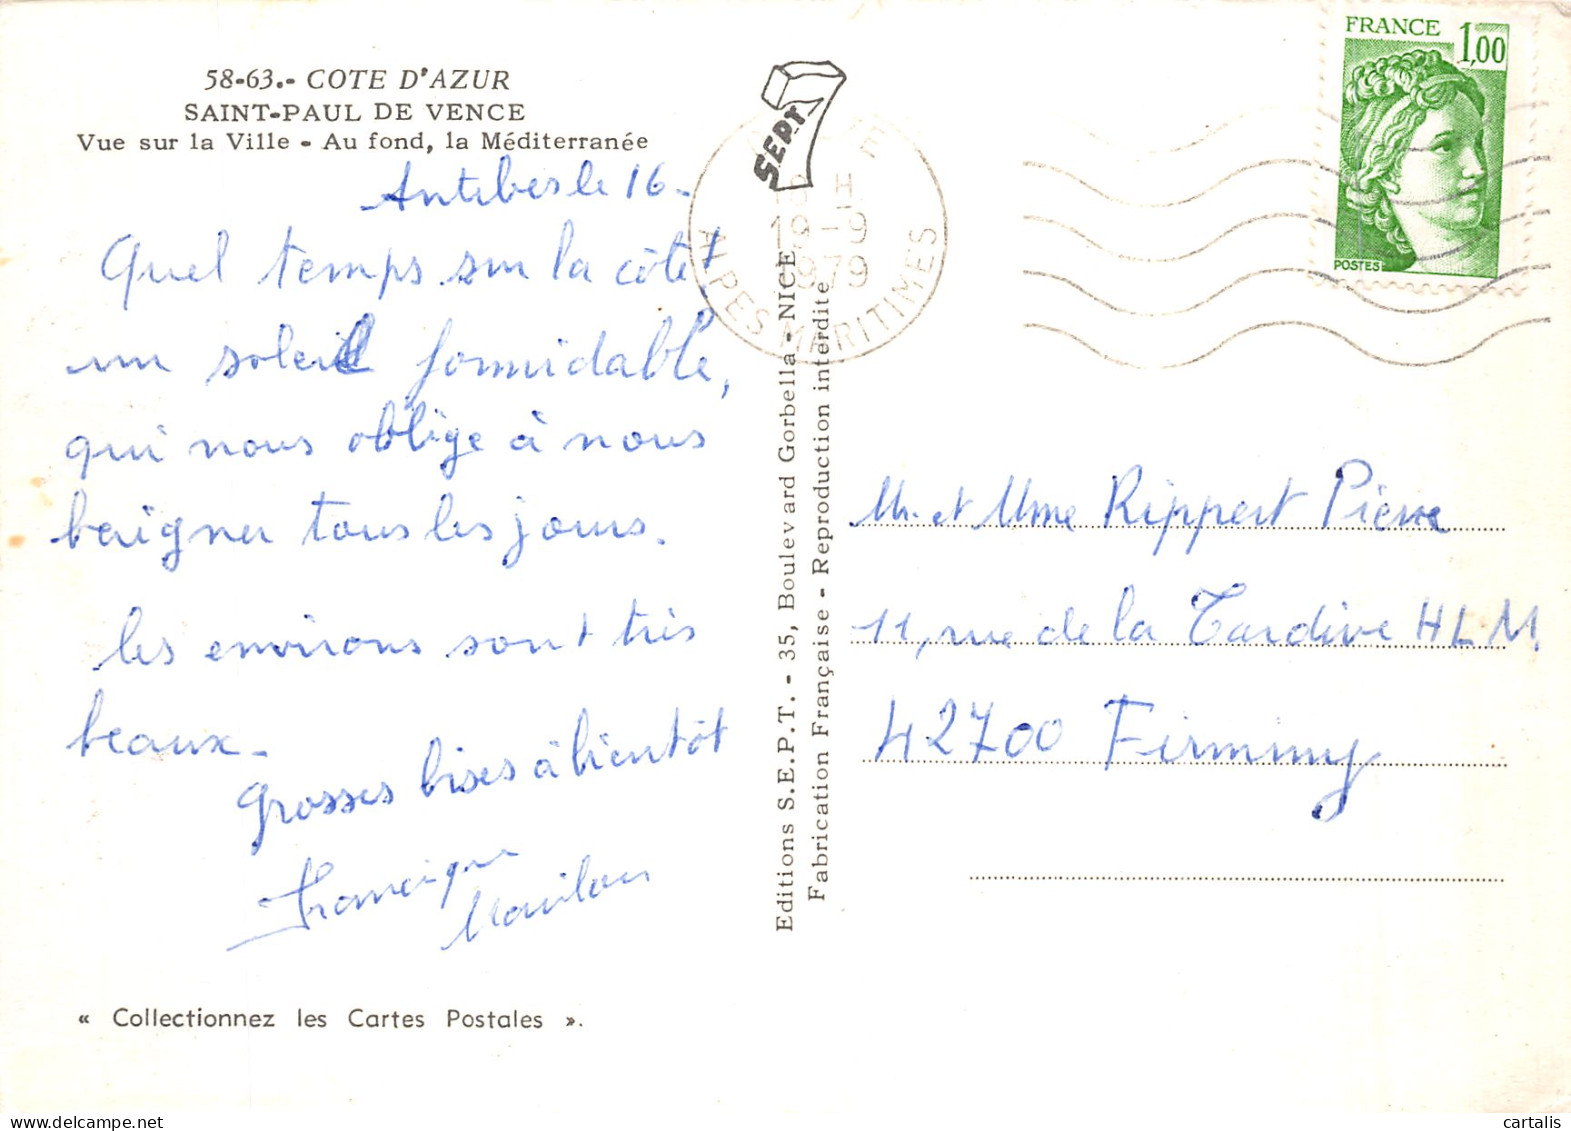 58-63.- COTE D'AZUR
SAINT-PAUL DE VENCE
Vue sur la Ville - Au fond, la Méditerranée
Antibes le 16-
Quel temps sur la côte!
un soleil formidable,
qui nous oblige à nous
baigner tous les jours.
les environs sont très
beaux-
Grosses bises à bientôt
« Collectionnez les Cartes Postales ».
SEPT
18 H
19-9
1979
ALPES MARITIMES
Editions S.E.P.T. - 35, Boulevard Gorbella - NICE
Fabrication Française - Reproduction interdite
FRANCE 1,00
POSTES
Mr. et Mme Rippert Pierre
11, rue de la Tardive HLM
42700 Firmmy
cartalis